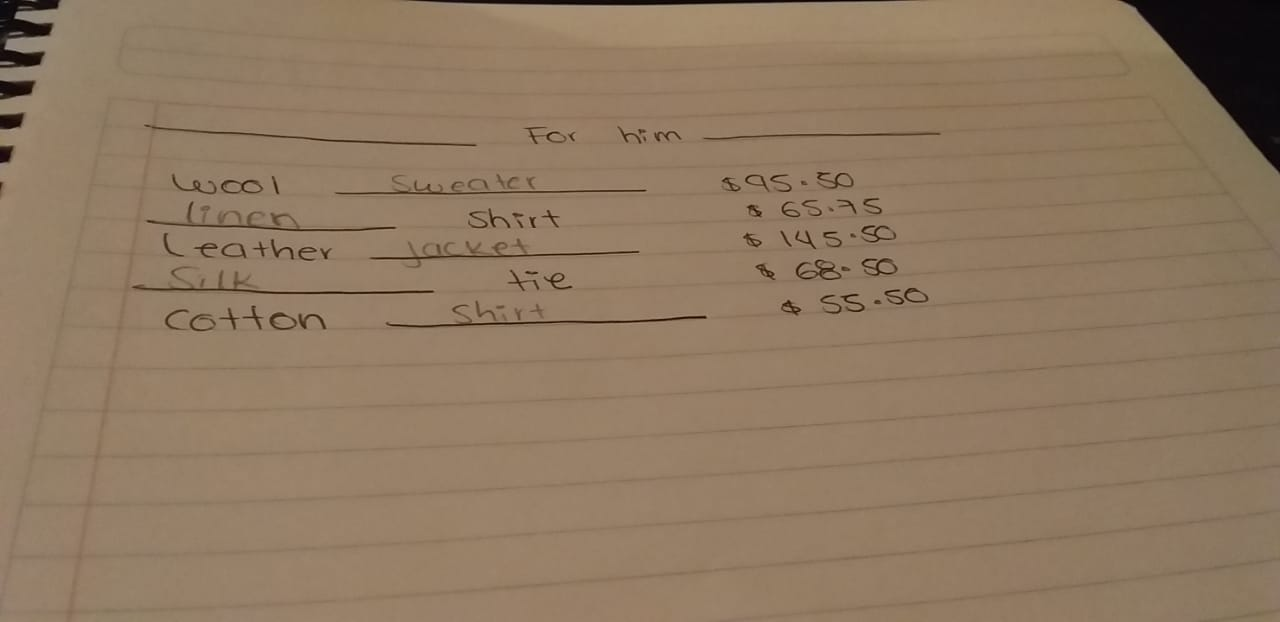 For him
Wool sweater $95.50
linen shirt $65.75
Leather jacket $145.50
Silk tie $68.50
Cotton shirt $55.50